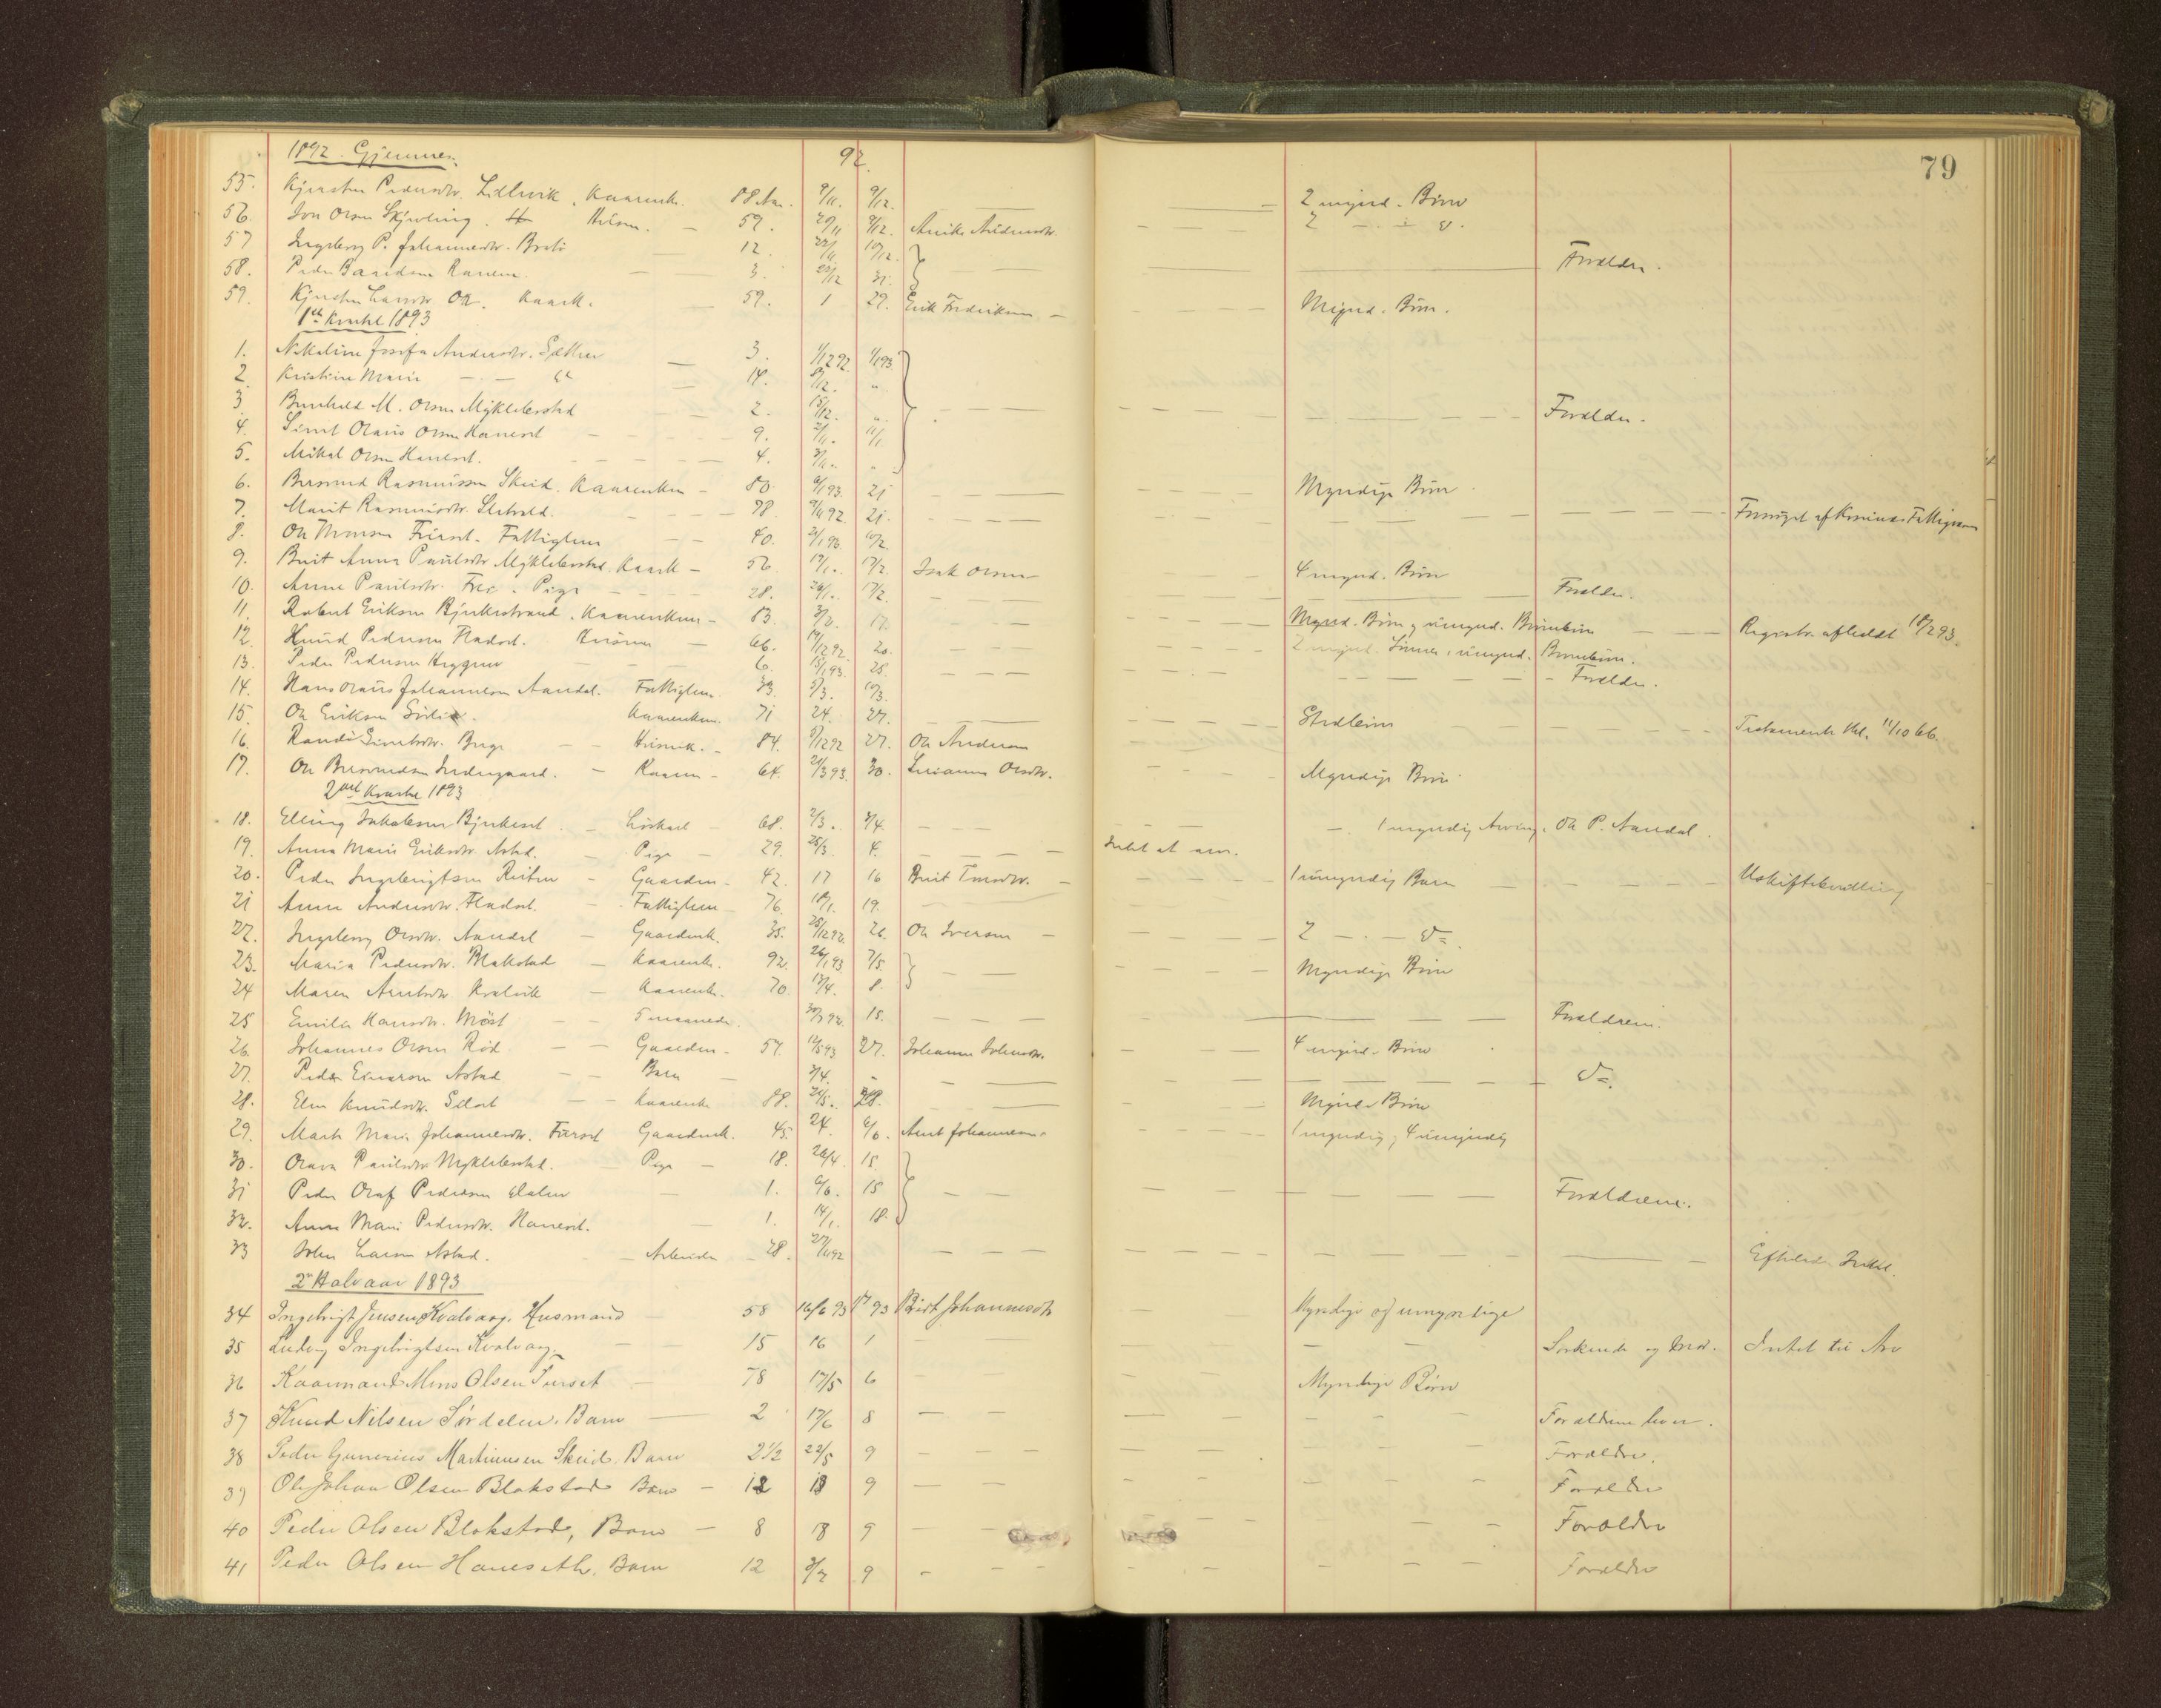 79
1892. Gjemnes. 92.
55. Kjersten Pedersdtr. Lillevik, Kaarenk. 88 Aar. 9/11. 9/12. 2 mynd. Børn
56. Jon Olsen Skjølling. Husm. 59. 20/11 9/12. 2 — " — d.
57 Ingeborg P. Johannesdtr. 12. 22/11 10/12.
58. Peder Baardsen 3. 31. Forældre.
59. Kjersten Larsdtr. Kaark. 59. 1 29. Erik Frederiksen Mynd. Børn.
1ste Kvartal 1893
1. Nikoline Josefa Andersdtr. 3. 1/12 92. 1/1 93.
2. Kristine Marie — 14. 8/12. "
3 Brynhild M. Olsen Myklebostad 2. 15/12. " Forældre.
4. Sivert Olaus Olsen Haneset 9. 2/11. 11/1
5. Mikal Olsen Haneset. 4. 3/11. "
6. Bersvend Rasmussen Skeid. Kaarenkm 80 6/1 93. 21 Myndige Børn
7. Marit Rasmusdtr. 78. 9/11 92. 21. Forsørget af Kornstad Fattigvæsen
8. Ole Monsen Furset. Fattiglem 40. 10/2.
9. Berit Anna Paulsdtr Myklebostad. Kaark 56 17/1. 17/2. Isak Olsen 4 mynd. Børn
10. Anne Paulsdtr. Pige 28. 26/1. 17/2. Forældre.
11. Robert Eriksen Bjerkestrand. Kaarenkm 83. 3/2. 17. Mynd. Børn og umynd. Børnebørn Registr. afholdt 18/2 93.
12. Knud Pedersen Fladset. Husmn 66. 14/12 92. 20. 2 mynd. Sønner, umynd. Børnebørn.
13. Peder Pedersen Heggem 6. 15/1 93. 25. Forældre.
14. Hans Olaus Johannesen Aandal. Fattiglem 33. 5/3. 10/3.
15. Ole Eriksen Kaarenkm. 71 24. 27. Stedbørn Testamente 11/10 66.
16. Randi Sivertsdtr. Berge Husmk. 84. 9/12 92 27. Ole Andersen
17. Ole Bersvendsen Indergaard. Kaarm 64. 21/3 93. 30. Lucianna Olsdtr. Myndige Børn
2det Kvartal 1893
18. Elling Jakobsen Bjerkeset. Løskarl 68. 2/3. 3/4. 1 myndig Arving, Ole P. Aandal.
19. Anna Marie Eriksdtr. Astad. Pige 29. 25/3. 4. Intet at arv.
20. Peder Ingebrigtsen Reiten Gaardm. 42. 17 16 Berit Tøresdtr. 1 umyndig Barn Uskiftebevilling
21 Anne Andersdtr. Fladset. Fattiglem 76. 18/1. 19.
22. Ingeborg Olsdtr. Aandal Gaardmk. 35. 25/12 92. 26. Ole Iversen 2 — " — do.
23. Maria Pedersdtr. Blakstad Kaarenk. 92. 26/1 93. 7/5. Myndige Børn
24 Maren Arntsdtr. Kvalvik Kaarenk. 70. 17/4. 8.
25 Emilie Hansdtr. Møst 5 maaneder. 30/7 92. 15. Forældrene.
26. Johannes Olsen Rød Gaardm. 57. 12/5 93 27. Johanna Johnsdtr. 4 mynd. Børn
27. Peder Einarsen Astad Barn 3/4. " do.
28. Elen Knudsdtr. Kaarenk. 88. 21/5. 28. Mynd. Børn
29. Marit Marie Johannesdtr. Furset Gaardmk. 45. 24. 6/6. Arnt Johannesen 1 myndig, 4 umyndig
30. Olava Paulsdtr Myklebostad. Pige 18. 26/4. 15.
31 Peder Olaf Pedersen Dalen 1. 6/6. 15 Forældrene.
32. Anne Marie Pedersdtr. Haneset. 1. 14/1. 18.
33 John Larsen Astad. Arbeider 28. 27/11 92 Efterlod Intet.
2. Halvaar 1893
34 Ingebrigt Jensen Kvalvaag, Husmand 58 16/6 93 1/7 93 Berit Johannesdtr Myndige og umyndige
35 Ludvig Ingebrigtsen Kvalvaag. 15 16 1 Søskende og Mor. Intet til Arv
36 Kaarmand Mons Olsen Furset 78 17/5 6 Myndige Børn
37 Knud Nilsen Sørdalen. Barn 2 17/6 8 Forældrene lever.
38 Peder Gunerius Martinusen Skeid. Barn 2 1/2 22/5 9 Forældre.
39 Ole Johan Olsen Blakstad Barn 12 18 9 Forældre
40 Peder Olsen Blakstad, Barn 8 18 9 Forældre
41 Peder Olsen Haneseth. Barn 12 3/7 9 Forældre